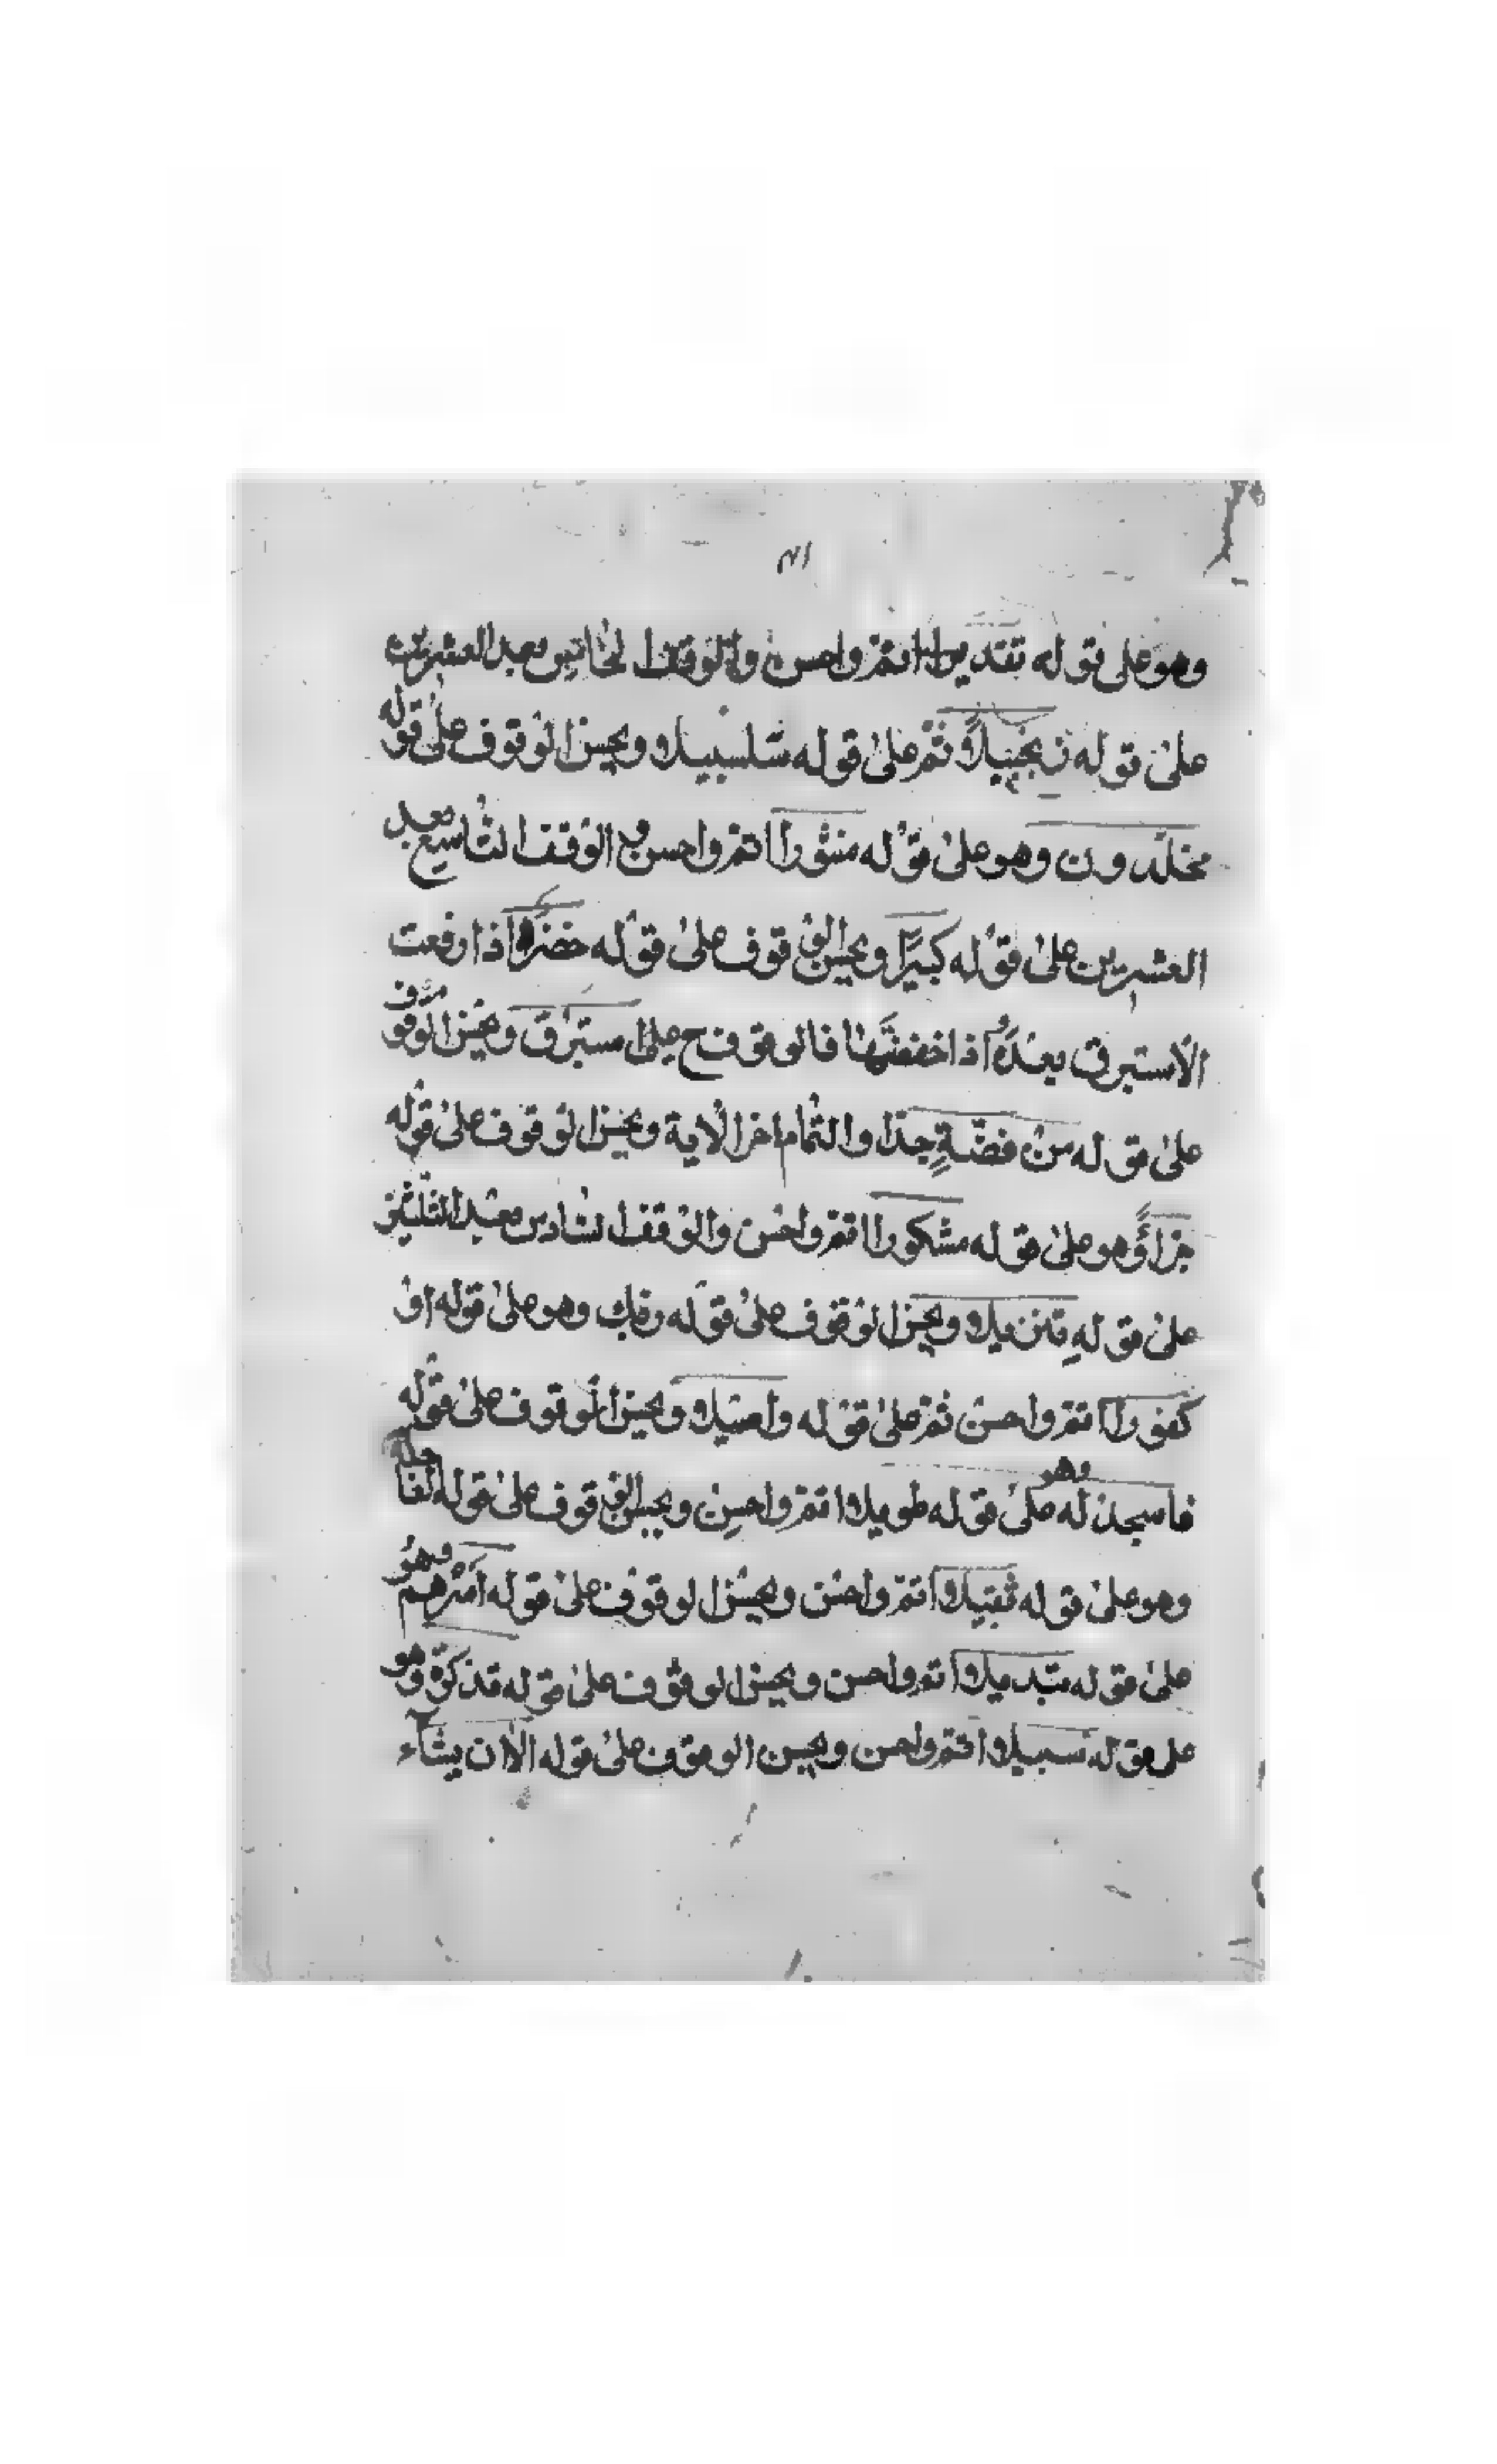 وهو على قوله تقديرا اتمّ واحسن والوقف الخامس بعد العشرين
على قوله زنجبيلاً وثمّ على قوله سلسبيلا ويحسن الوقوف على قوله
مخلّدون وهو على قوله منثورا اتمّ واحسن والوقف التاسع بعد
العشرين على قوله كبيرًا ويحسن الوقوف على قوله خضرٌ اذا رفعت
الاستبرق بعده واذا خفضتها فالوقوف ح على استبرق ويحسن الوقوف
على قوله من فضّةٍ جدّا والتمام اخر الاية ويحسن الوقوف على قوله
جزاءً وهو على قوله مشكورا اتمّ واحسن والوقف السادس بعد الثلثين
على قوله تنزيلا ويحسن الوقوف على قوله ربك وهو على قوله او
كفورا اتمّ واحسن ثمّ على قوله واصيلا ويحسن الوقوف على قوله
فاسجد له وهو على قوله طويلا اتمّ واحسن ويحسن الوقوف على قوله العاجلة
وهو على قوله ثقيلا اتمّ واحسن ويحسن الوقوف على قوله اسرهم وهو
على قوله تبديلا اتم واحسن ويحسن الوقوف على قوله تذكرة وهو
على قوله سبيلا اتمّ واحسن ويحسن الوقوف على قوله الا ان يشآء